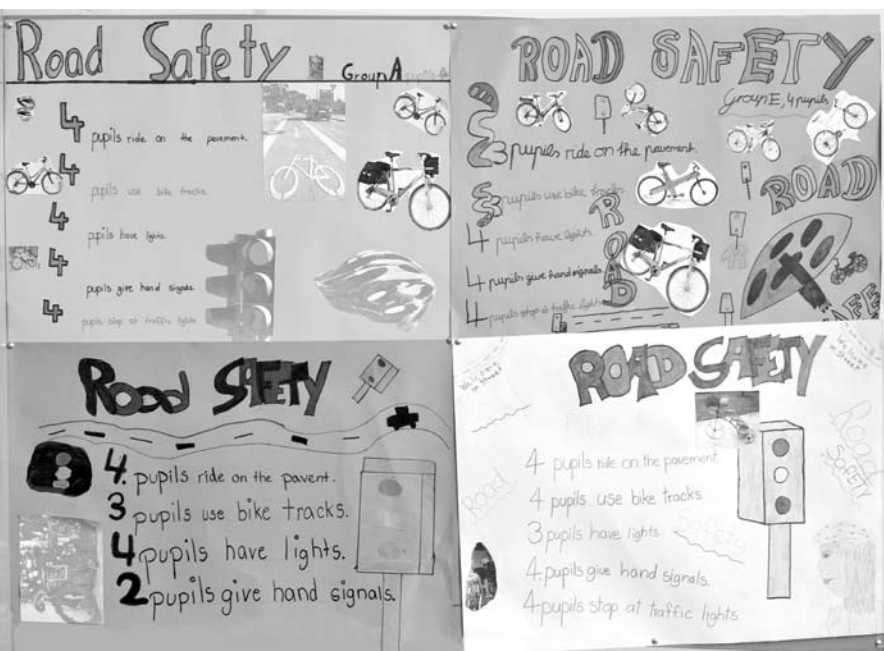 Road Safety
Group A
4 pupils ride on the pavement.
4 pupils use bike tracks.
4 pupils have lights.
4 pupils give hand signals.
4 pupils stop at traffic lights
ROAD SAFETY
Group E, 4 pupils
3 pupils ride on the pavement.
3 pupils use bike tracks.
4 pupils have lights.
4 pupils give hand signals.
4 pupils stop at traffic lights
ROAD
ROAD
Road SAFETY
4. pupils ride on the pavent.
3 pupils use bike tracks.
4 pupils have lights.
2 pupils give hand signals.
ROAD SAFETY
Welcome
in street
Welcome
in street
4 pupils ride on the pavement
4 pupils use bike tracks.
3 pupils have lights.
4. pupils give hand signals.
4 pupils stop at traffic lights
Road
Safety
Road
SAFETY